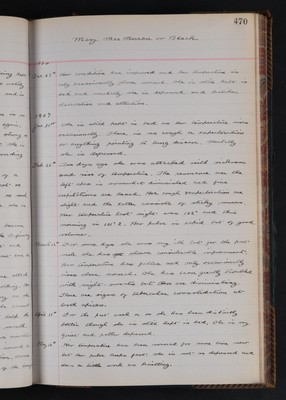 470
Mary Mac or Black
Dec 25th Her condition has improved and her temperature is
only occasionally above normal. She is still kept in
bed and mentally she is depressed and
and attention.
1907
Jan 20th She is still kept in bed as her temperature rises
occasionally. There is no cough or expectoration
or anything pointing to lung disease. Mentally
she is depressed.
Feb 20th days ago she was attacked with
and rise of temperature. The resonance over the
left apex is somewhat diminished and fine
crepitations are heard. The cough & expectoration are
slight and the latter consists of sticky mucus.
Her temperature last night was 102° and this
morning is 101°. Her pulse is of good
volume.
March 12th For some days she was very ill but for the past
week she has shown considerable improvement.
Her temperature has fallen and only occasionally
rises above normal. She has been greatly troubled
with night-sweats but these are diminishing.
There are signs of tubercular consolidation at
both apices.
April 11th For the past week or so she has been distinctly
better though she is still kept in bed. She is very
quiet and rather depressed.
May 10th Her temperature has been normal for some time now
but her pulse keeps fast. She is not so depressed and
does a little work as knitting.